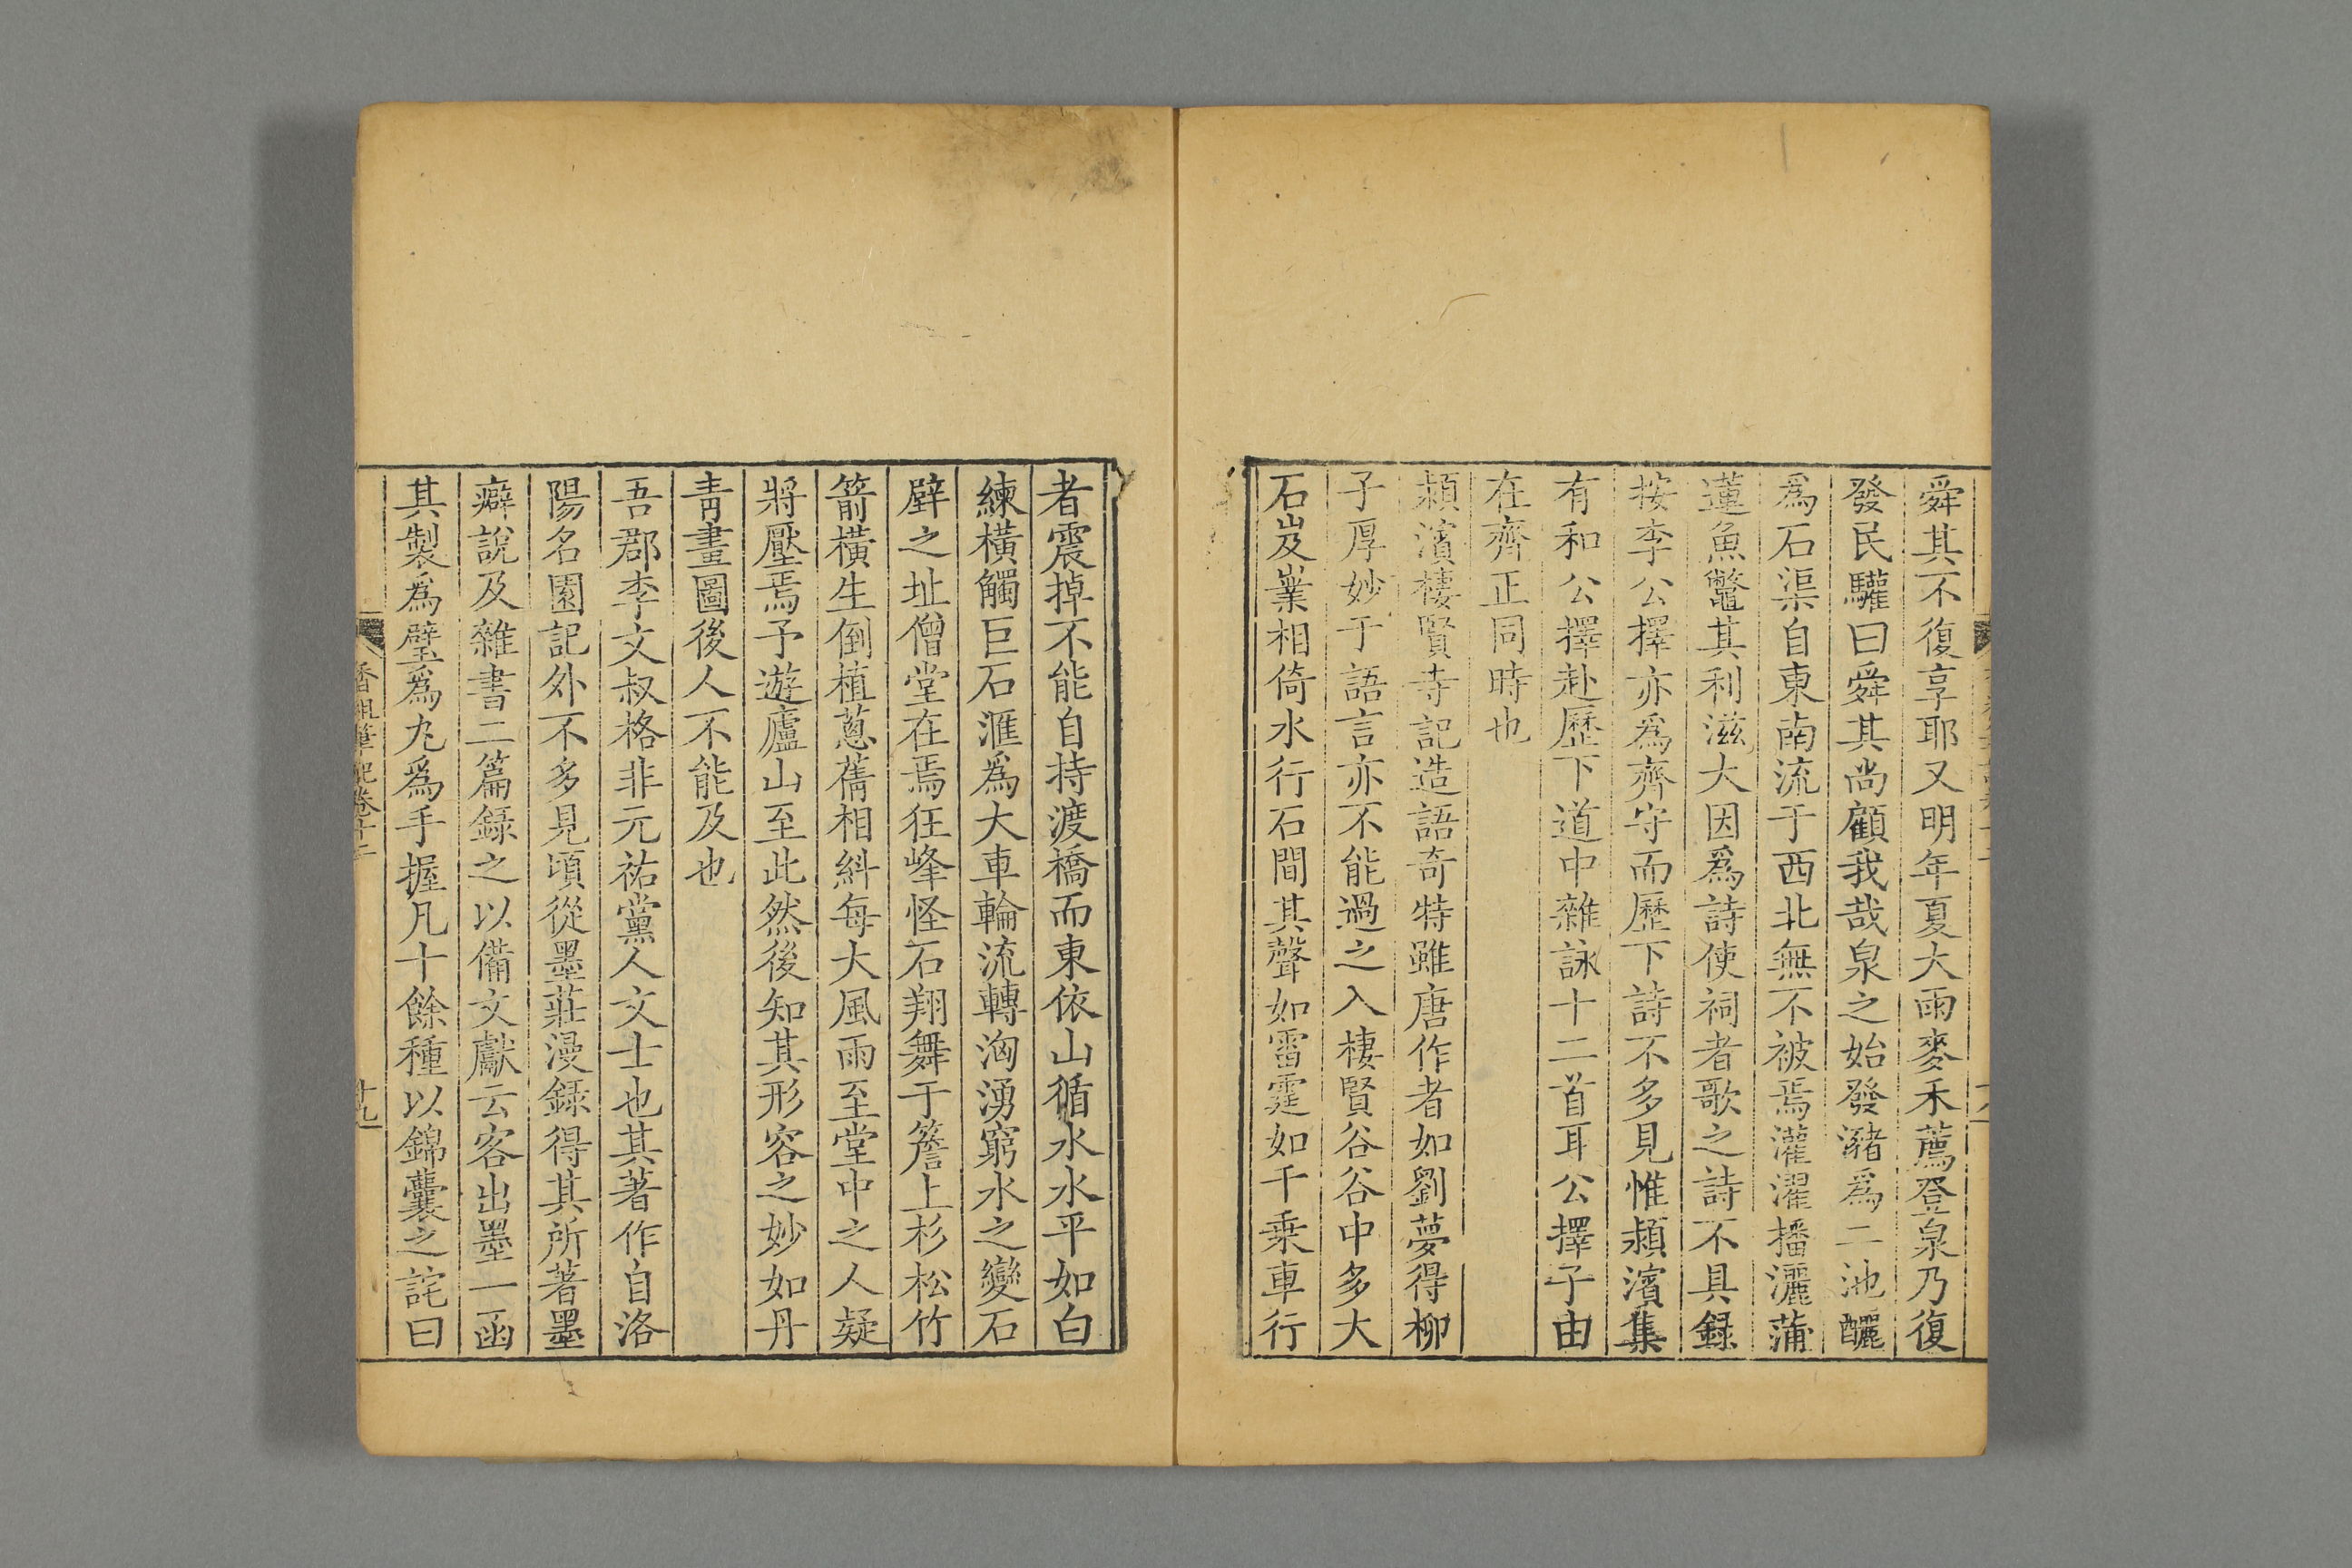 舜其不復享耶又明年夏大雨麥禾薦登泉乃復
發民驩曰舜其尚顧我哉泉之始發瀦爲二池釃
爲石渠自東南流于西北無不被焉灌濯播灑蒲
蓮魚鼈其利滋大因爲詩使祠者歌之詩不具録
按李公擇亦爲齊守而歷下詩不多見惟潁濱集
有和公擇赴歷下道中雜詠十二首耳公擇子由
在齊正同時也
潁濱棲賢寺記造語奇特雖唐作者如劉夢得柳
子厚妙于語言亦不能過之入棲賢谷谷中多大
石岌嶪相倚水行石間其聲如雷霆如千乗車行
者震掉不能自持渡橋而東依山循水水平如白
練橫觸巨石滙爲大車輪流轉洶湧窮水之變石
壁之址僧堂在焉狂峰怪石翔舞于簷上杉松竹
箭橫生倒植蔥蒨相糾每大風雨至堂中之人疑
將壓焉予遊廬山至此然後知其形容之妙如丹
青畫圖後人不能及也
吾郡李文叔格非元祐黨人文士也其著作自洛
陽名園記外不多見頃從墨莊漫録得其所著墨
癖說及雜書二篇録之以備文獻云客出墨一函
其製爲璧爲丸爲手握凡十餘種以錦囊之詫曰
香祖筆記卷十二
十九